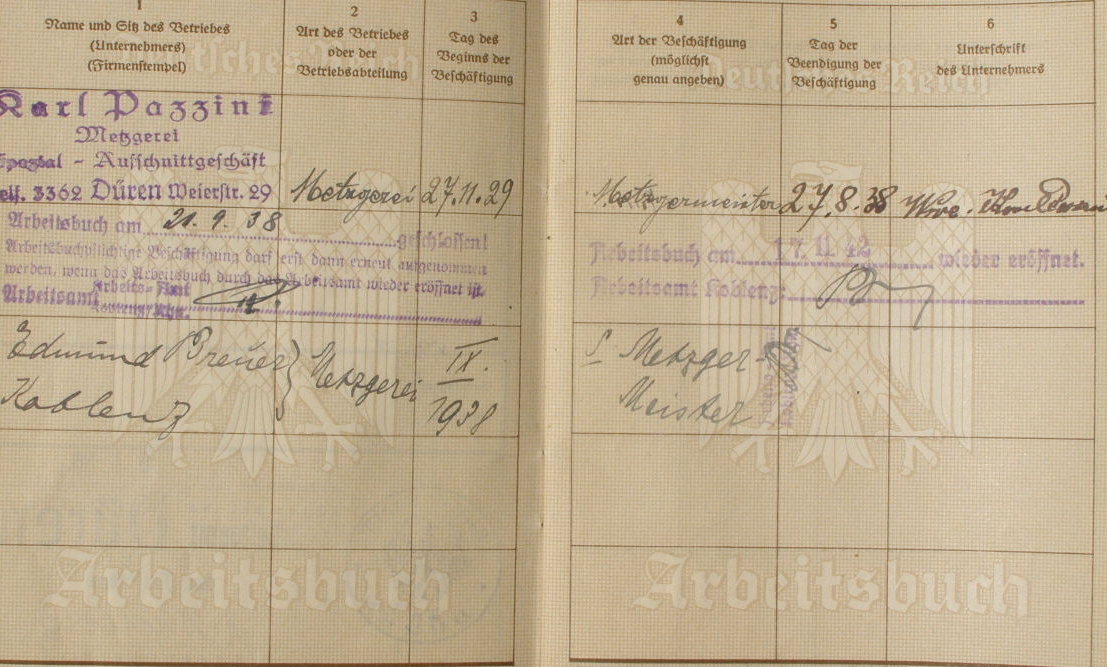 1
Name und Sitz des Betriebes
(Unternehmers)
(Firmenstempel)
2
Art des Betriebes
oder der
Betriebsabteilung
3
Tag des
Beginns der
Beschäftigung
Karl Pazzini
Metzgerei
Spezial - Ausschnittgeschäft
Telf. 3362 Düren Weierstr. 29
Metzgerei
27.11.29
Arbeitsbuch am 21. 9. 38 geschlossen!
Arbeitsbuchpflichtige Beschäftigung darf erst dann erneut aufgenommen
werden, wenn das Arbeitsbuch durch das Arbeitsamt wieder eröffnet ist.
Arbeitsamt Arbeits-Amt
Koblenz/Rhn.
Edmund Breuer
Koblenz
Metzgerei
IX.
1938
Arbeitsbuch
4
Art der Beschäftigung
(möglichst
genau angeben)
5
Tag der
Beendigung der
Beschäftigung
6
Unterschrift
des Unternehmers
Deutsches Reich
Metzgermeister
27.8.38
Wwe.
Arbeitsbuch am 17. 11. 42 wieder eröffnet.
Arbeitsamt Koblenz:
Metzger-
Meister
Arbeitsbuch